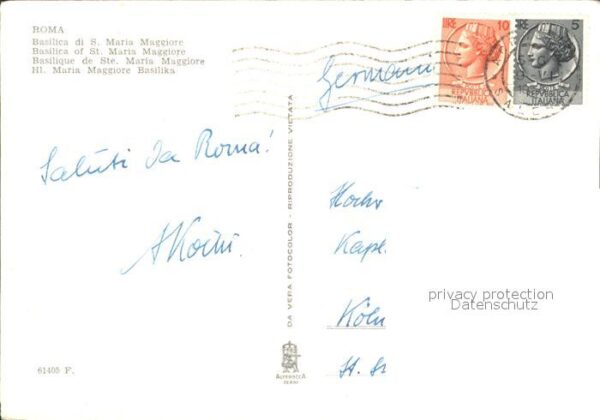 ROMA
Basilica di S. Maria Maggiore
Basilica of St. Maria Maggiore
Basilique de Ste. Maria Maggiore
Hl. Maria Maggiore Basilika
Germania
LIRE 10
REPVBBLICA
ITALIANA
LIRE 5
REPVBBLICA
ITALIANA
Saluti da Roma!
DA VERA FOTOCOLOR - RIPRODUZIONE VIETATA
Hochw
Kapl.
Köln
St.
privacy protection
Datenschutz
61405 F.